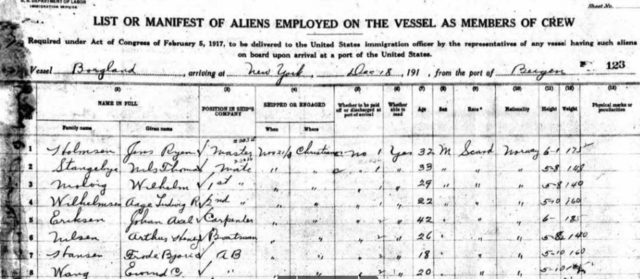 U. S. DEPARTMENT OF LABOR
IMMIGRATION SERVICE
Sheet No.
LIST OR MANIFEST OF ALIENS EMPLOYED ON THE VESSEL AS MEMBERS OF CREW
Required under Act of Congress of February 5, 1917, to be delivered to the United States immigration officer by the representatives of any vessel having such aliens
on board upon arrival at a port of the United States.
Vessel Borgland, arriving at New York, Dec 18, 191 , from the port of Bergen 123
NAME IN FULL POSITION IN SHIP'S COMPANY SHIPPED OR ENGAGED Whether to be paid off or discharged at port of arrival Whether able to read Age Sex Race* Nationality Height Weight Physical marks or peculiarities
Family name Given name When Where
1 Holmsen Jens Master no Yes 32 M Scand Norway 6-1 175
2 Stangeby Nils Mate " 38 " " " 5-8
3 Wilhelm 1st " " 29 " " " 5-8 140
4 Wilhelmsen Aage Ludvig 2nd " " 22 " " " 5-10 160
5 Eriksen Johan Axel Carpenter " 42 " " " 6-
6 Nilsen Arthur Boatman " 26 " " " 5-8 140
7 Hansen Frode AB " 18 " " " 5-10 160
8 Wang C. " " 20 " " " 5-10